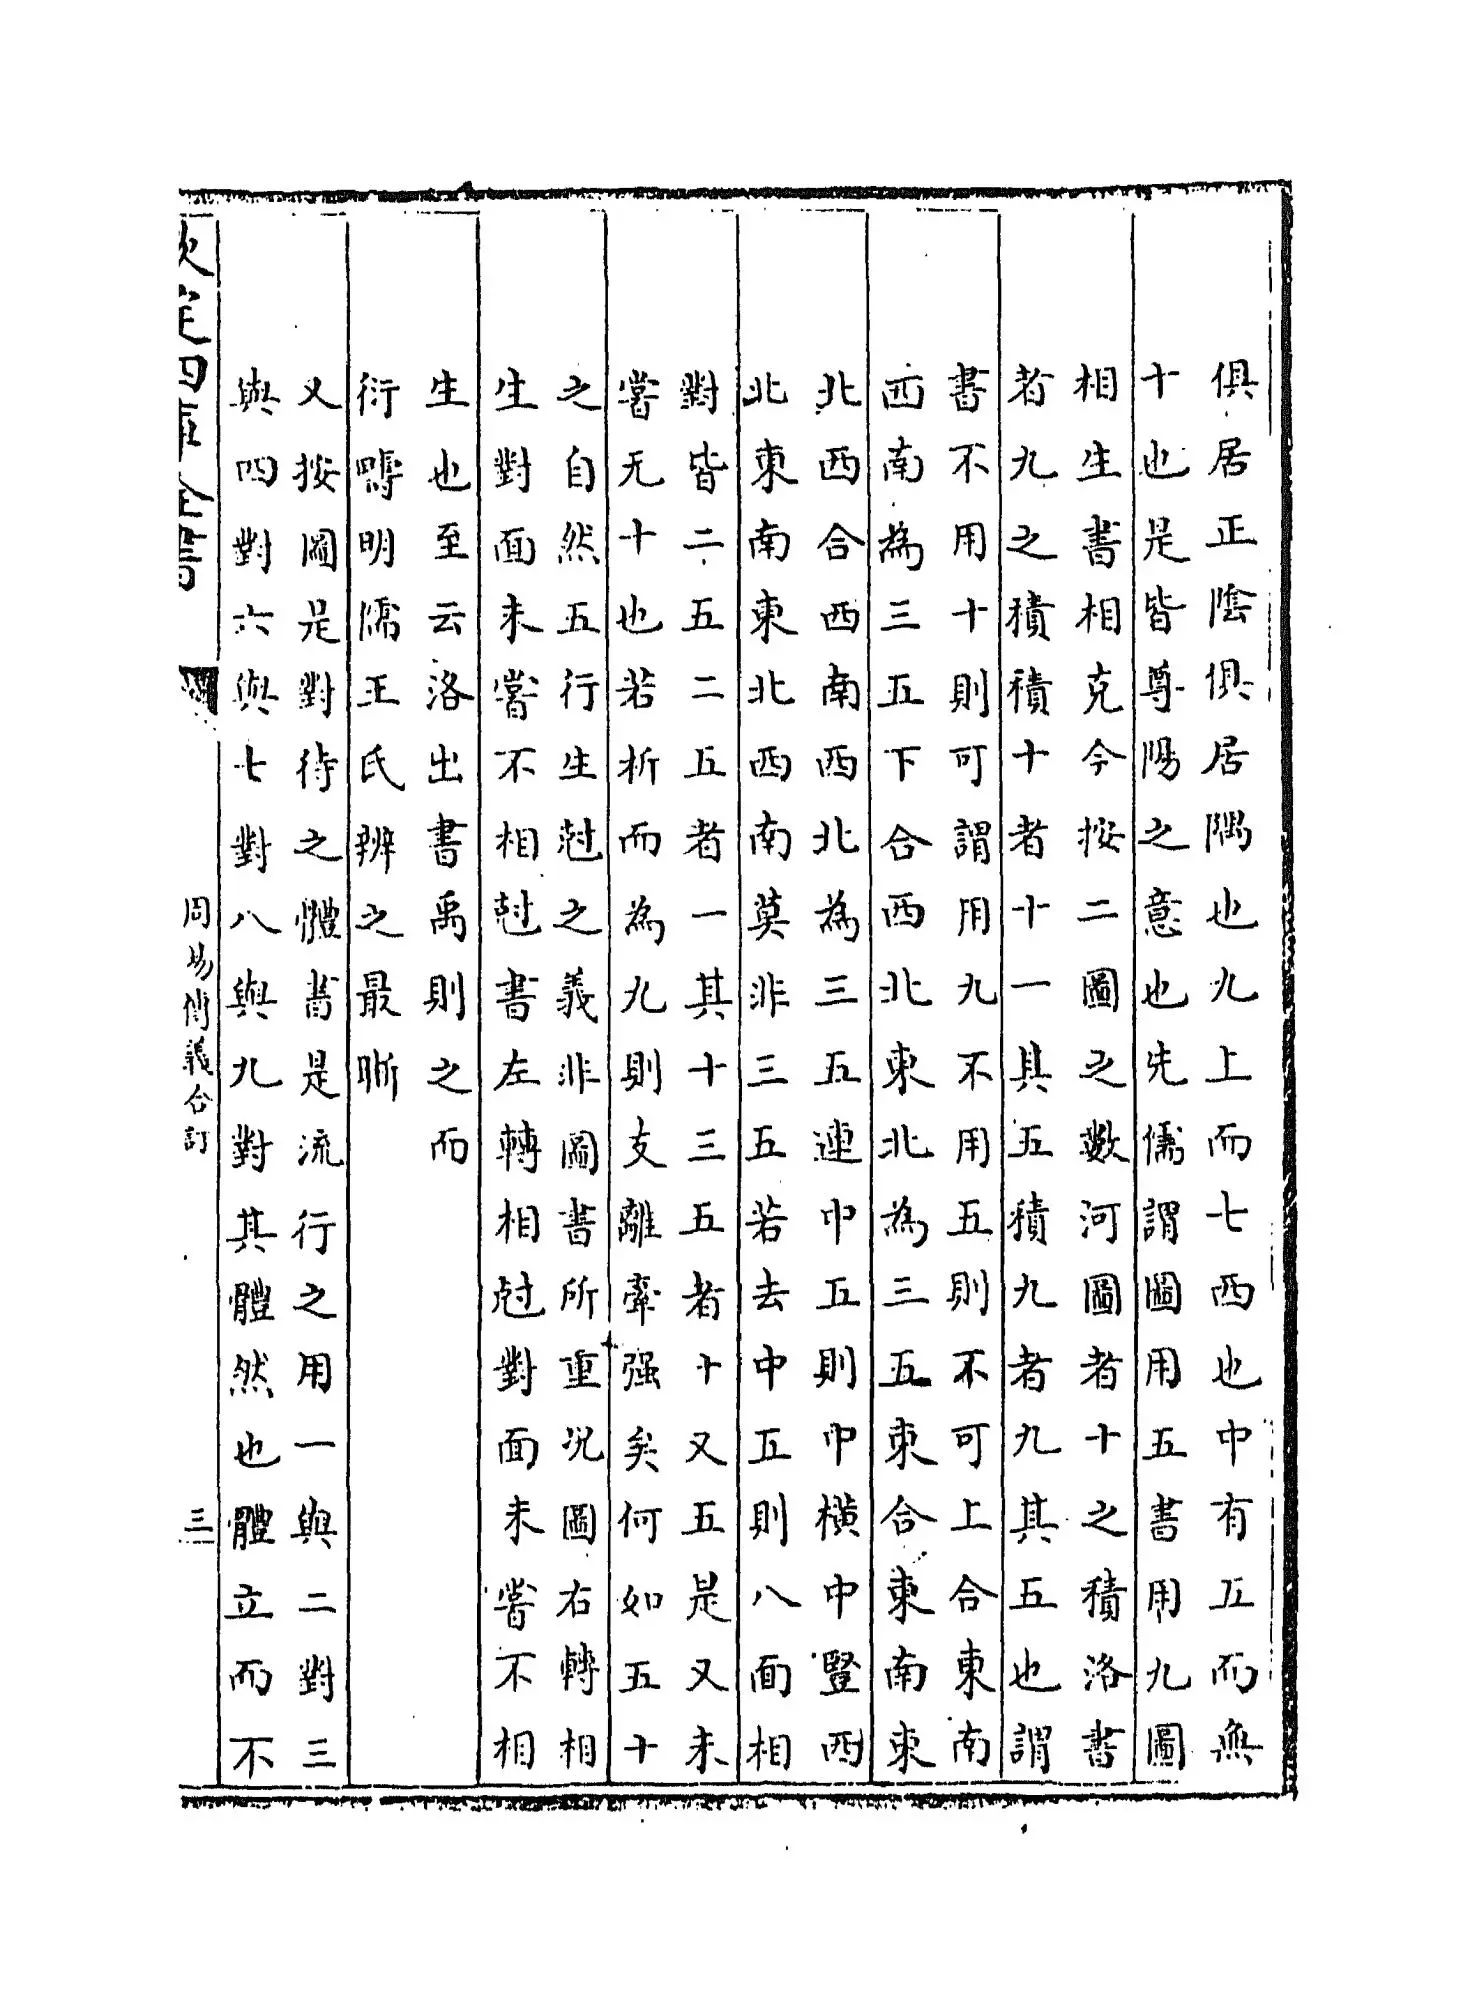 俱居正陰俱居隅也九上而七西也中有五而無
十也是皆尊陽之意也先儒謂圖用五書用九圖
相生書相克今按二圖之數河圖者十之積洛書
者九之積積十者十一其五積九者九其五也謂
書不用十則可謂用九不用五則不可上合東南
西南為三五下合西北東北為三五東合東南東
北西合西南西北為三五連中五則中橫中豎西
北東南東北西南莫非三五若去中五則八面相
對皆二五二五者一其十三五者十又五是又未
嘗无十也若析而為九則支離牽强矣何如五十
之自然五行生尅之義非圖書所重况圖右轉相
生對面未嘗不相尅書左轉相尅對面未嘗不相
生也至云洛出書禹則之而
衍疇明儒王氏辨之最晰
又按圖是對待之體書是流行之用一與二對三
與四對六與七對八與九對其體然也體立而不
欽定四庫全書
周易傳義合訂
三